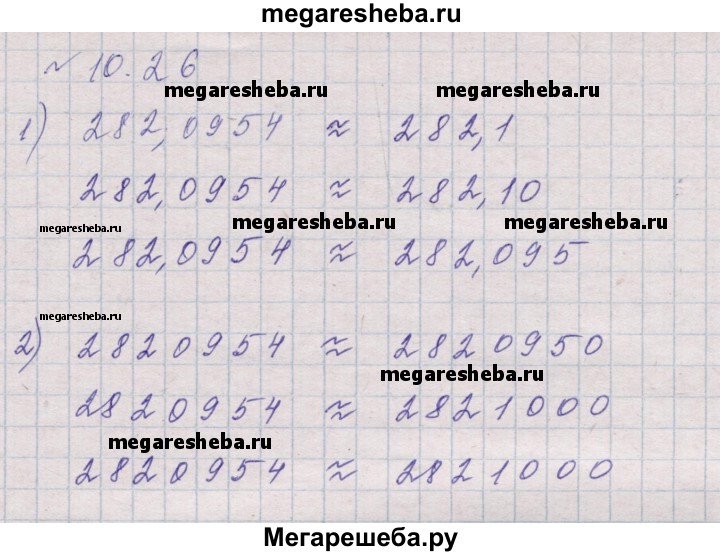 megaresheba.ru
№ 10.26
megaresheba.ru megaresheba.ru
1) 282,0954 ≈ 282,1
282,0954 ≈ 282,10
megaresheba.ru megaresheba.ru megaresheba.ru
282,0954 ≈ 282,095
megaresheba.ru
2) 2820954 ≈ 2820950
megaresheba.ru
2820954 ≈ 2821000
megaresheba.ru
2820954 ≈ 2821000
Мегарешеба.ру